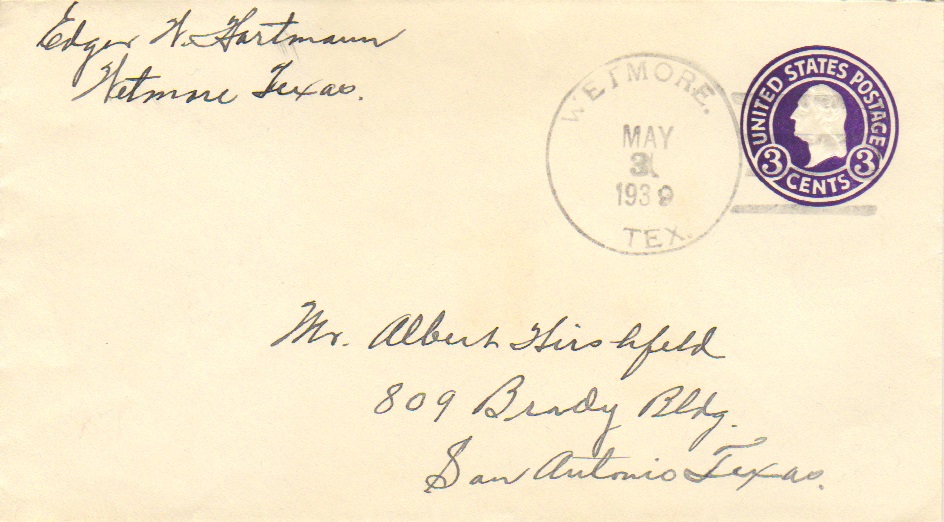 Edgar W. Hartmann
Wetmore Texas.
WETMORE.
MAY
31
1939
TEX.
UNITED STATES POSTAGE
3 CENTS 3
Mr. Albert Hirshfeld
809 Brady Bldg.
San Antonio Texas.